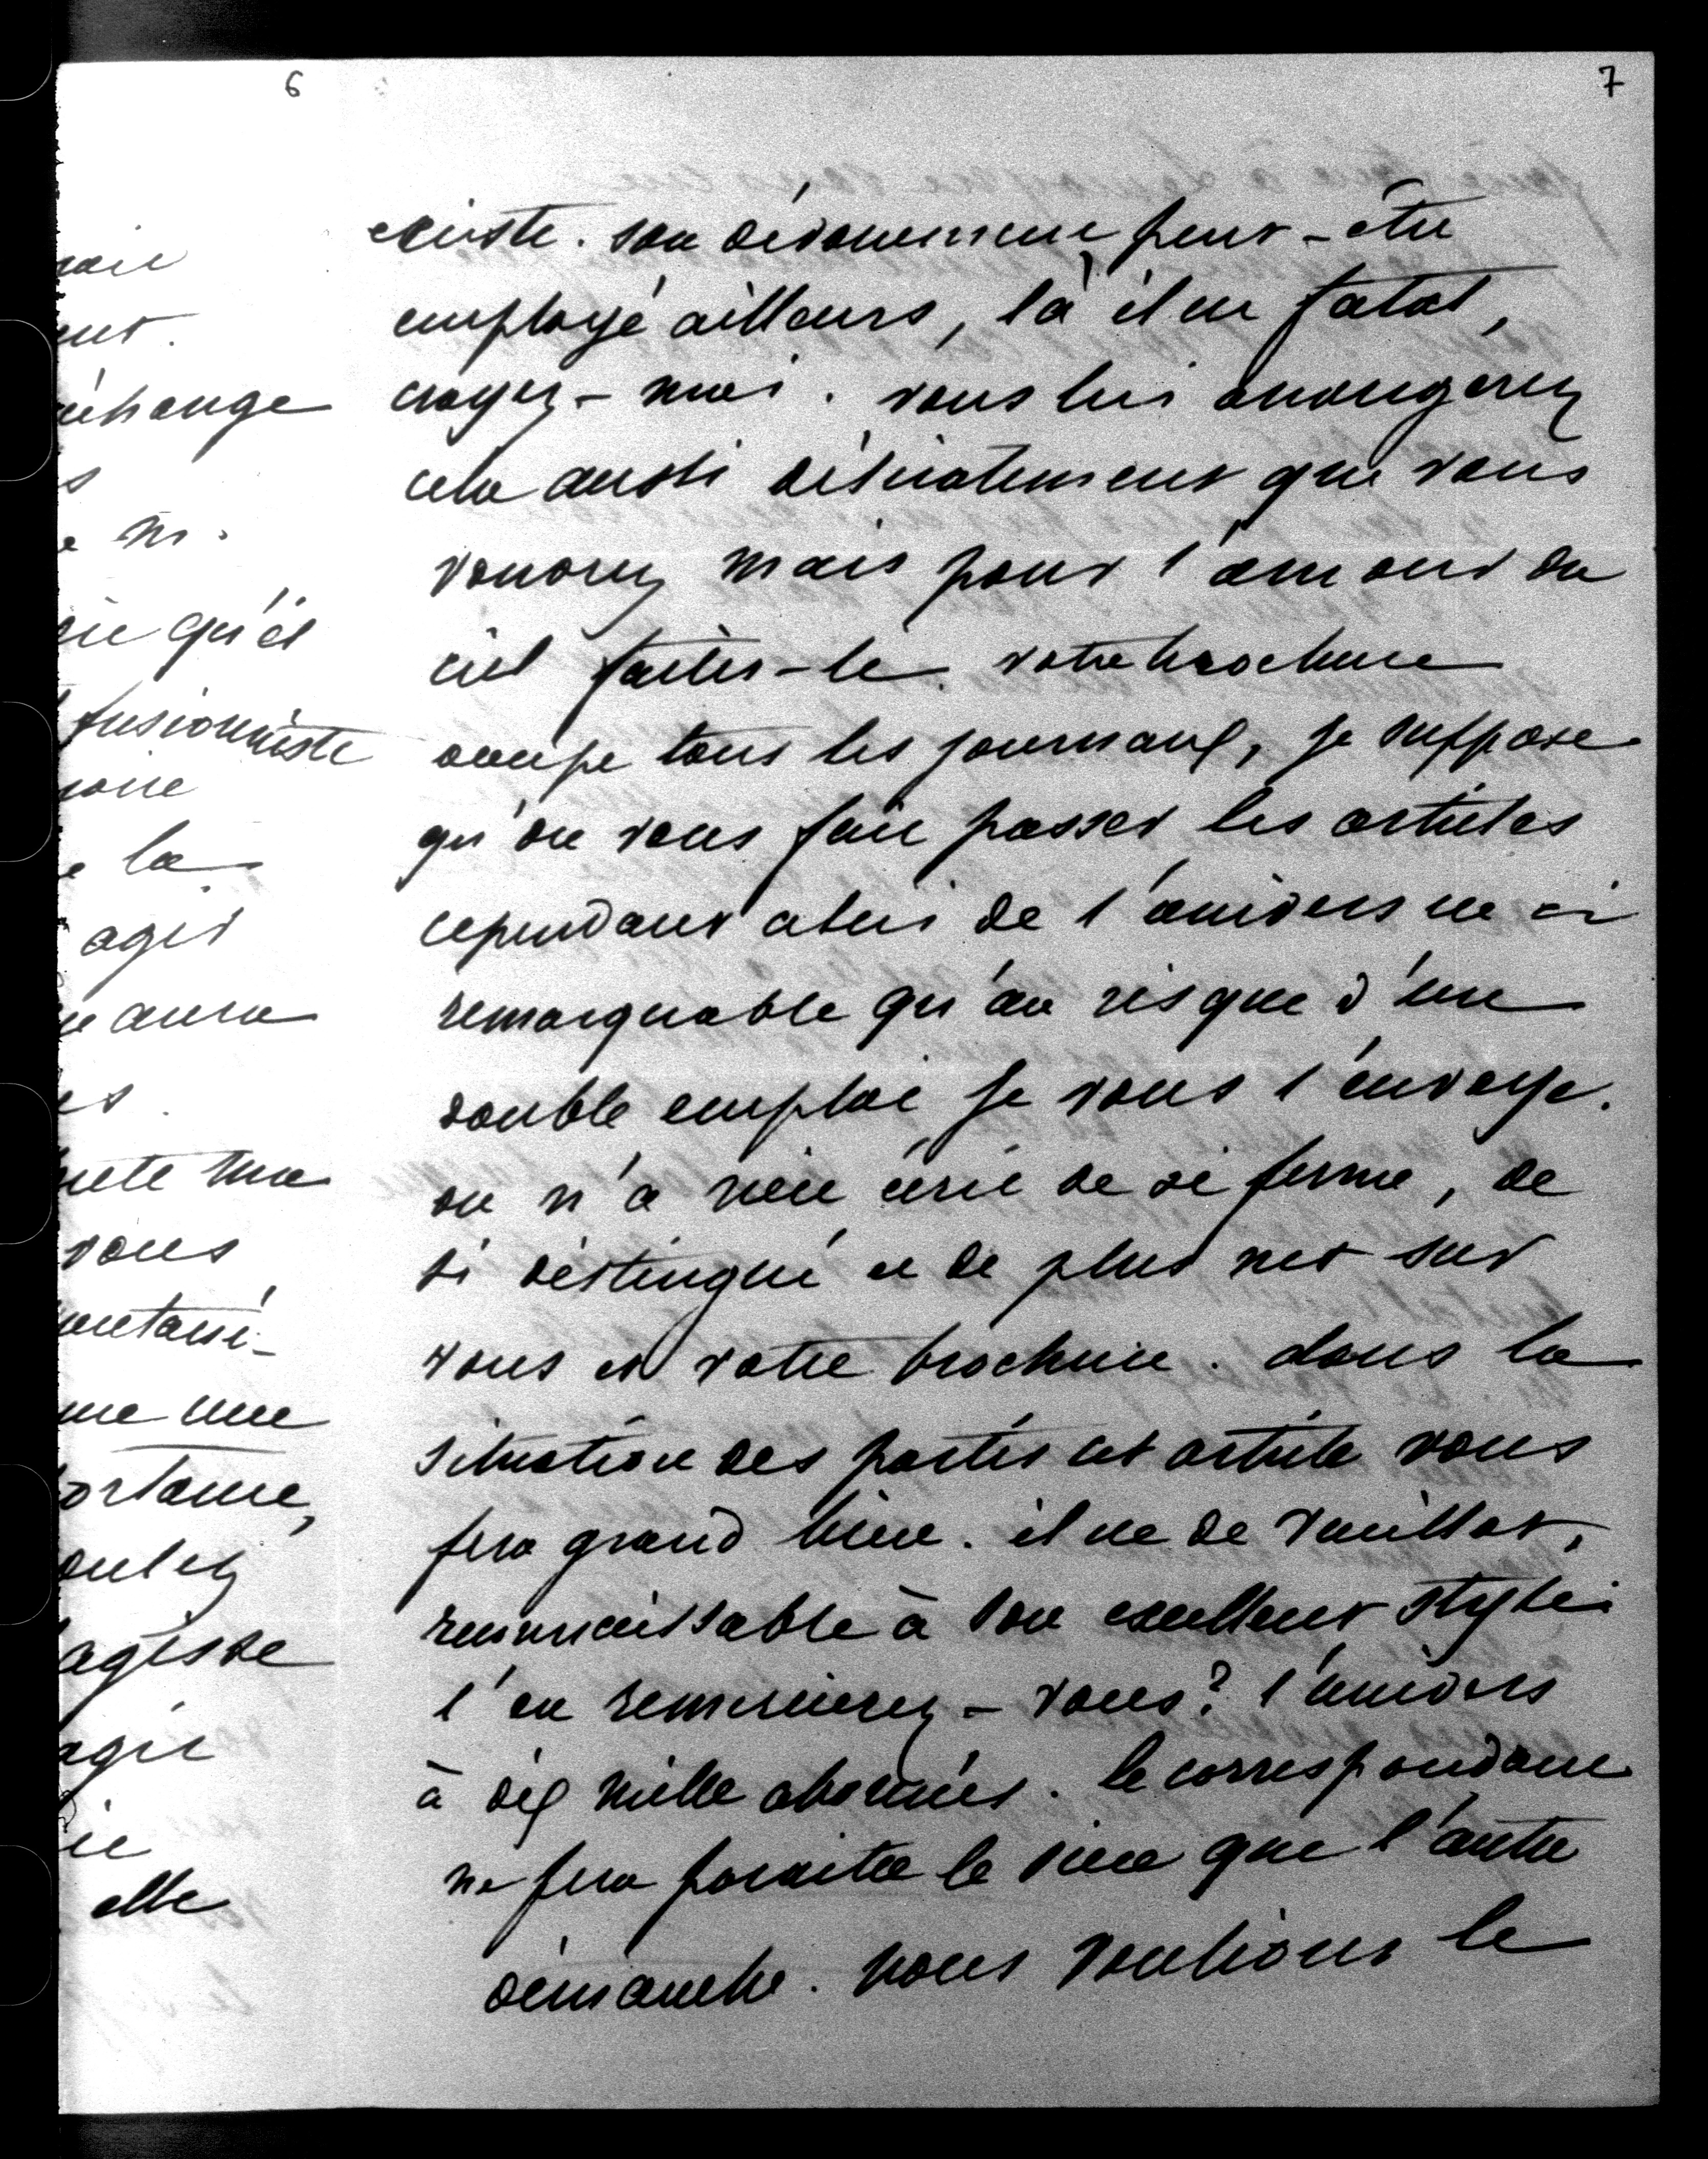 6
7
existe. son dévouement peut-être
employé ailleurs, là il est fatal,
croyez-moi. vous lui arrangerez
cela aussi délicatement que vous
voudrez mais pour l'amour du
ciel faites-le. votre brochure
occupe tous les journaux, je suppose
qu'on vous fait passer les articles
cependant celui de l'univers est si
remarquable qu'au risque d'une
double emploi je vous l'envoye.
on n'a rien écrit de si ferme, de
si distingué et de plus net sur
vous et votre brochure. dans la
situation des partis cet article vous
fera grand bien. il est de Veuillot,
reconnaissable à son excellent style.
l'en remercierez-vous? l'univers
à dix mille abonnés. le correspondant
ne fera paraître le sien que l'autre
dimanche. nous voulions le
échange
m.
qu'il
fusionniste
la
agir
aura
vous
une
elle